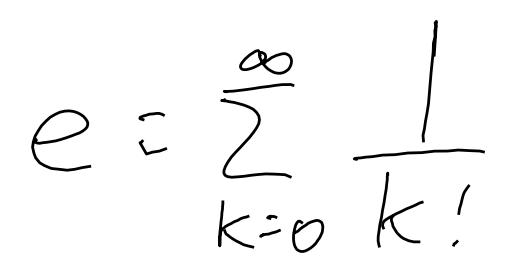 e = ∑_{k=0}^{∞} 1/k!